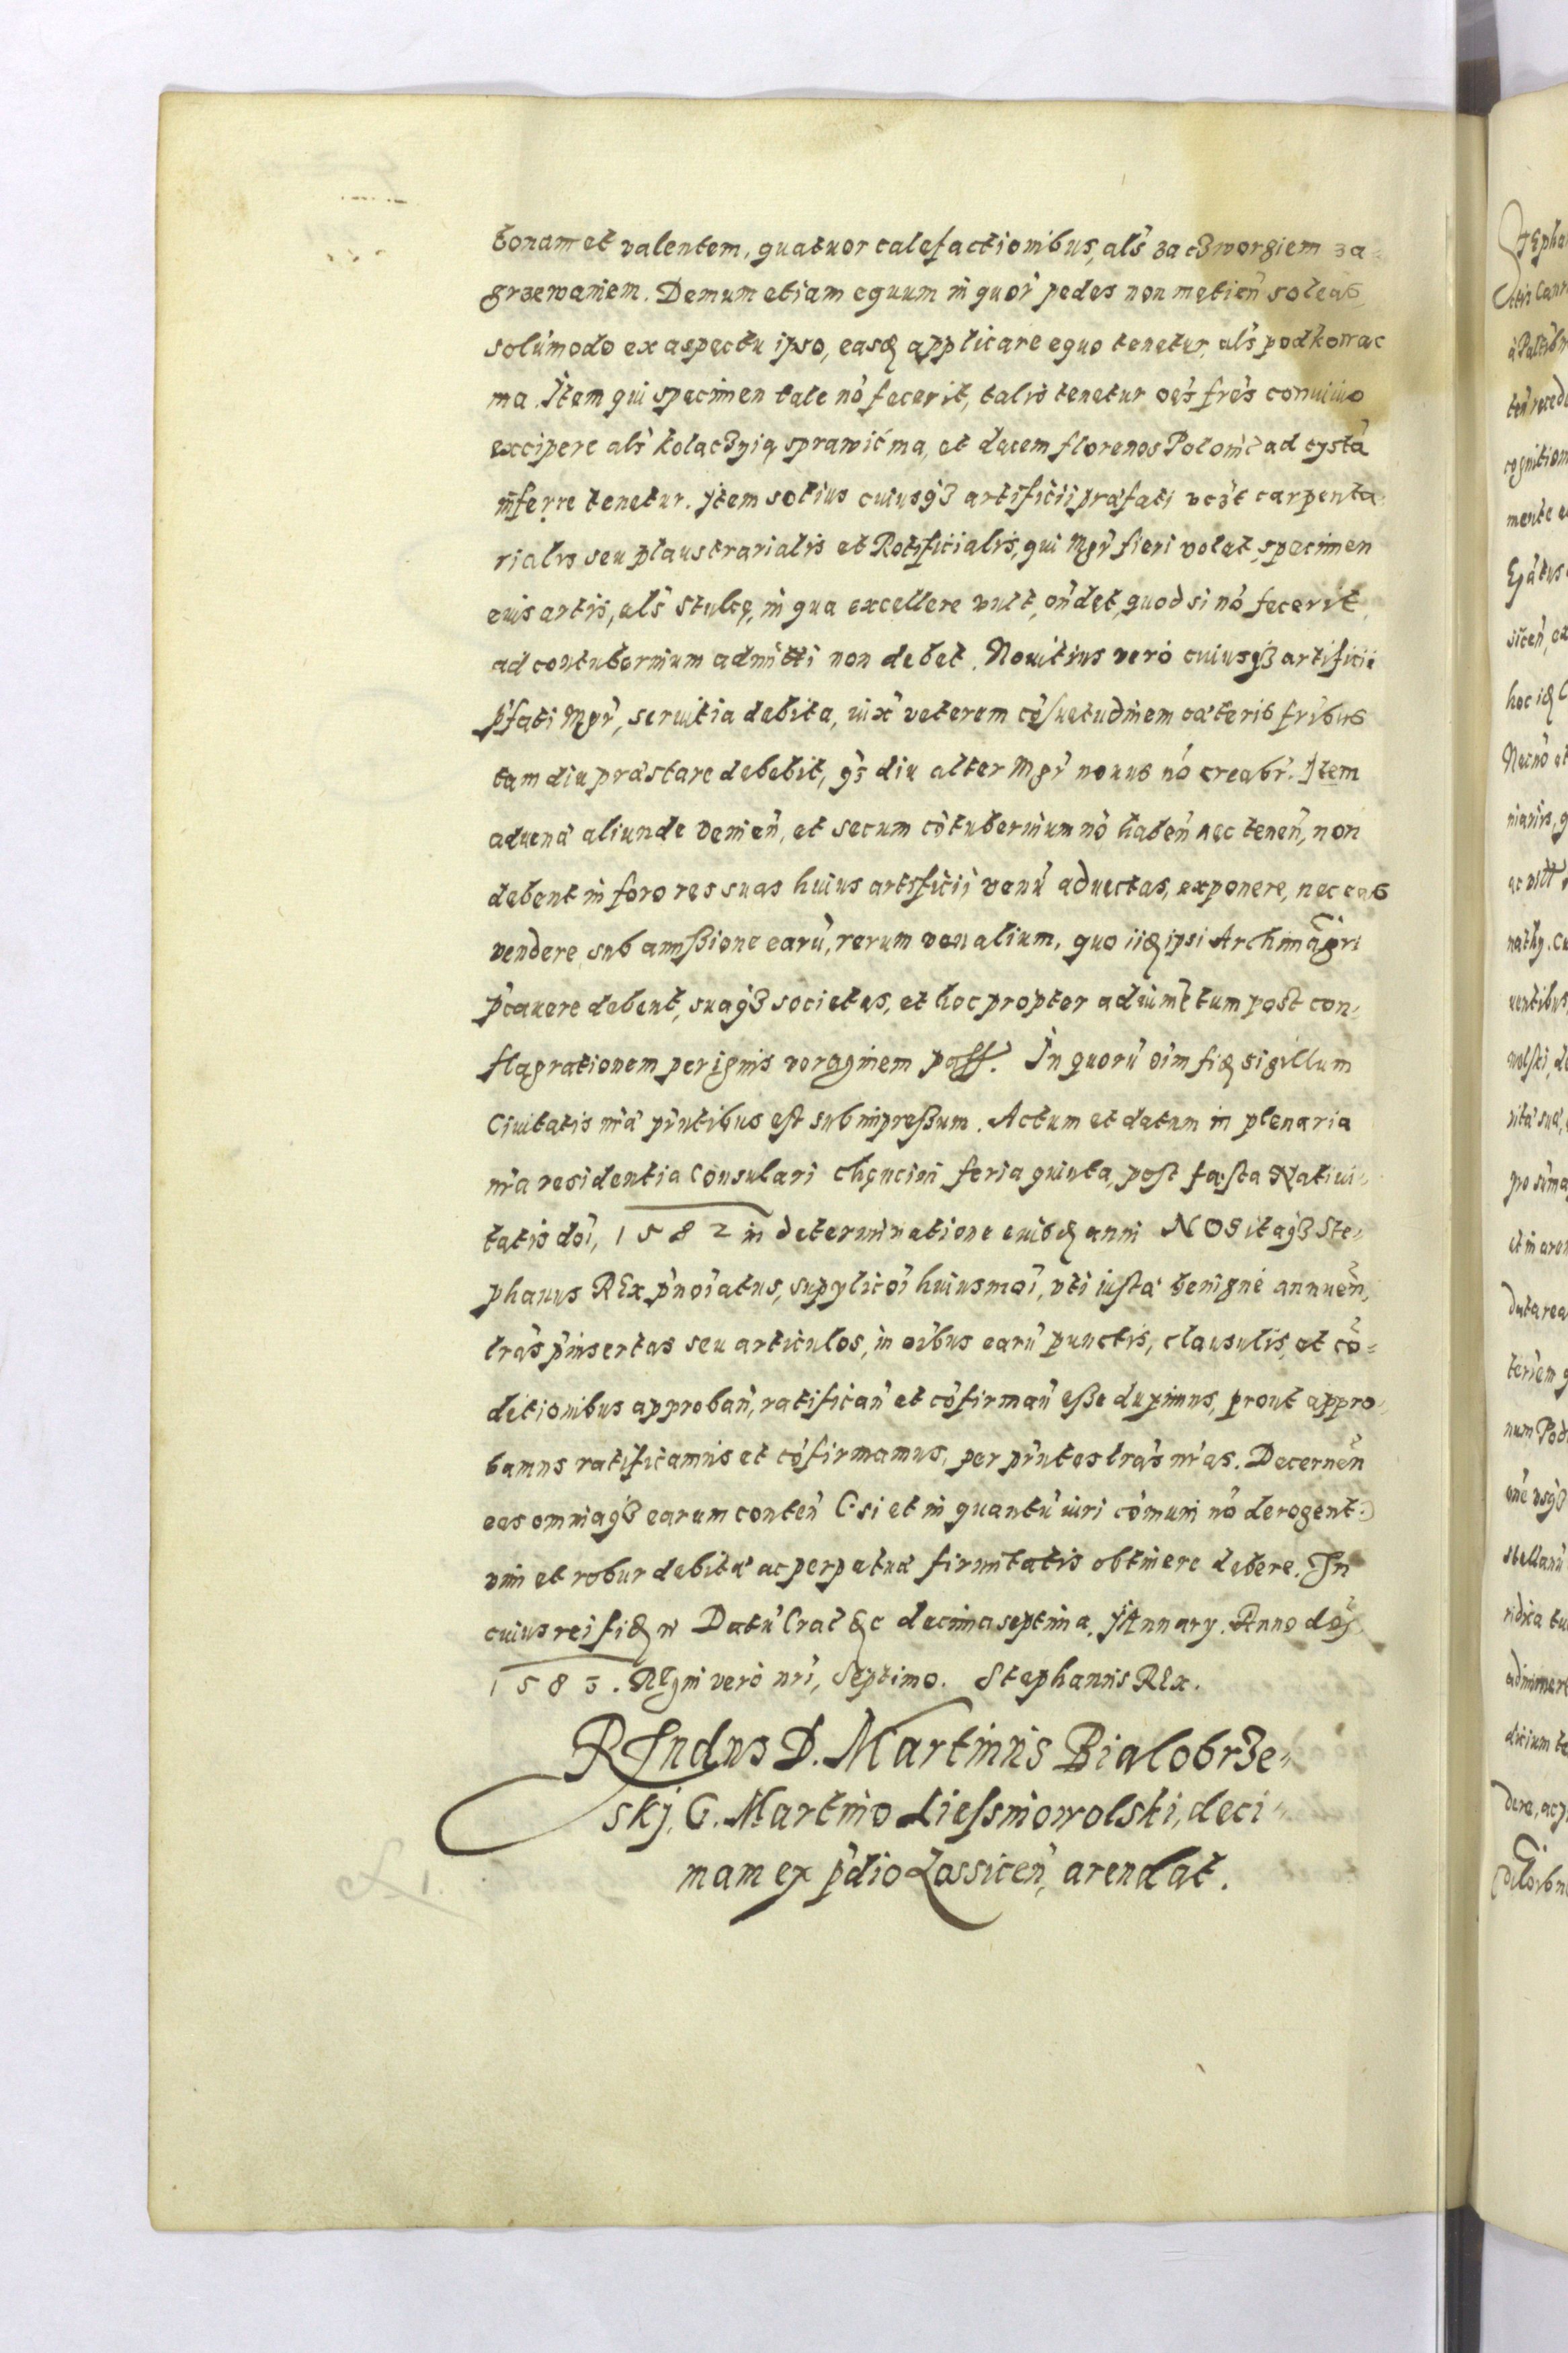 bonam et valentem, quatuor calefactionibus, als̃ za cʒworgiem za-
grzewaniem. Demum etiam equum in quor̃ pedes non metien̾ soleas,
solum̃odo ex aspectu ipso, easq₃ applicare equo tenetur, als̃ podkowac
ma. Item qui specimen tale nõ fecerit, talis tenetur oẽs frẽs conuiuio
excipere als̃ kolacʒyią sprawić ma, et decem florenos Polonic̃ ad cystã
inferre tenetur. Item solius cuiusqʒ artificii præfati vcʒt carpenta
rialis seu plaustrarialis et Rotificialis, qui Mgr̃ fieri volet, specimen
euis artis, als̃ stulcę, in qua excellere vult, oñdet, quod si nõ fecerit,
ad contubernium admitti non debet. Nouitius verò cuiusqʒ artificii
p̃fati Mgr̃, seruitia debita, iux̃ veterem cõsuetudinem cæteris frĩbus
tam diu præstare debebit, qʒ diu alter Mgr̃ nouus nõ creabr̃. Item
aduenæ aliunde venien̾, et secum cõtubernium nõ haben̾ nec tenen̾, non
debent in foro res suas huius artificii venũ aduectas, exponere, nec eas
vendere, sub amißione earũ, rerum venalium, quo iidq₃ ipsi Archimãgri
p̃cauere debent, suaqʒ societas, et hoc propter adiumẽtum post con-
flagrationem per ignis voraginem pass. In quorũ oĩm fiq₃ sigillum
Ciuitatis nr̃æ pñtibus est subimpreßum. Actum et datum in plenaria
nr̃a residentia Consulari Chęncini feria quinta, post fæsta Natiui-
tatis doĩ, 1582 in determinatione euisdq₃ anni NOS itaqʒ Ste-
phanus REx p̃noĩatus, supplicõi huiusmoĩ, vti iustæ benignè annuen̾,
lrãs p̃insertas seu articulos, in oĩbus earũ punctis, clausulis, et cõ=
ditionibus approban̾, ratifican̾ et cõfirman̾ eße duximus, prout appro-
bamus ratificamus et cõfirmamus, per pñtes lrãs nr̃as. Decernen̾
eas omniaqʒ earum conten̾ (:si et in quantũ iuri cõmuni nõ derogent:)
vim et robur debitæ ac perpetuæ firmitatis obtinere debere. In
cuius rei fidq₃ nr̃ Datũ Crac̃ &c decima septima, JAnnary. Anno doĩ
1583. REgni verò nr̃i, Septimo. Stephanus REx.
REndus D. Martinus Bialobrʒe-
skj, G. Martino Liessniowolski, deci-
mam ex p̃dio Lossicen̾, arendat.